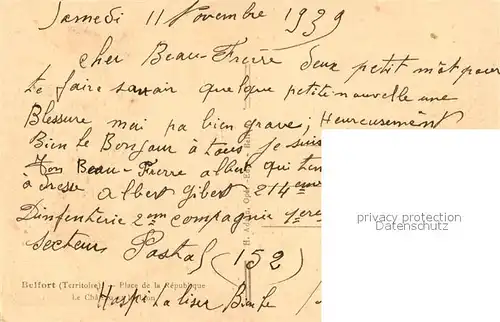 Samedi 11 Novembre 1939
cher Beau-Frère deux petit môt pour
te faire savoir quelque petite nouvelle une
Blessure mai pa bien grave; Heureusement
Bien le Bonjour à tous je suis
Ton Beau-Frerre albert qui
à dresse albert Gibert 214eme
Dinfenterie 2em compagnie 1ere
secteur Postal (152)
Belfort (Territoire) — Place de la République
Le Château Lion
Hospitaliser
privacy protection
Datenschutz